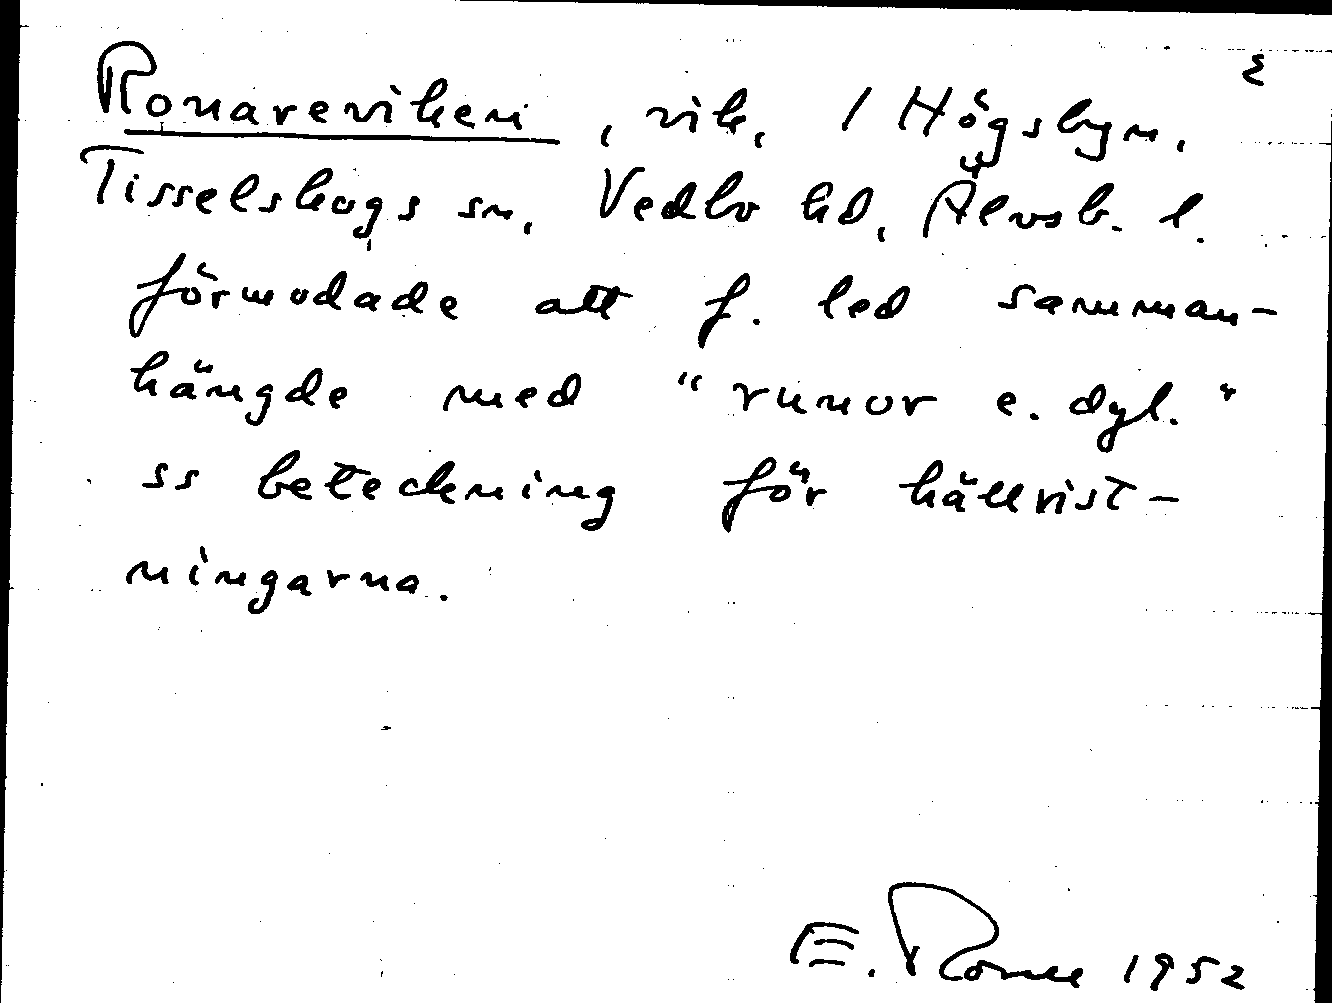 Ronareviken, vik, / Högsbyn,
Tisselskogs sn, Vedbo hd, Älvsb. l.
förmodade att f. led samman-
hängde med "runor e. dyl."
ss beteckning för hällrist-
ningarna.
E. 1952